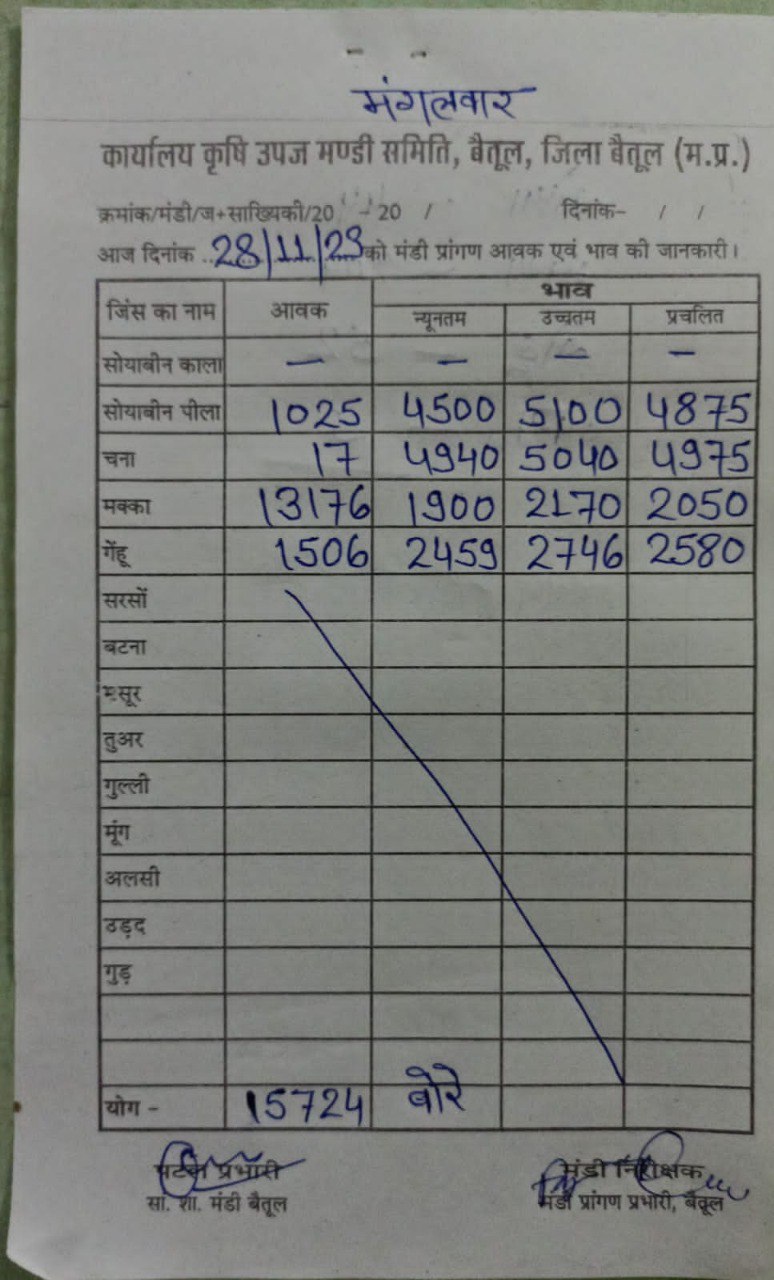 मंगलवार
कार्यालय कृषि उपज मण्डी समिति, बैतूल, जिला बैतूल (म.प्र.)
क्रमांक/मंडी/ज+साख्यिकी/20 - 20 / दिनांक- / /
आज दिनांक 28/11/23 को मंडी प्रांगण आवक एवं भाव की जानकारी।
जिंस का नाम आवक भाव
न्यूनतम उच्चतम प्रचलित
सोयाबीन काला — — — —
सोयाबीन पीला 1025 4500 5100 4875
चना 17 4940 5040 4975
मक्का 13176 1900 2170 2050
गेंहू 1506 2459 2746 2580
सरसों
बटना
मसूर
तुअर
गुल्ली
मूंग
अलसी
उड़द
गुड़
योग - 15724 बोरे
प्रभारी मंडी निरीक्षक
सां. शा. मंडी बैतूल मंडी प्रांगण प्रभारी, बैतूल